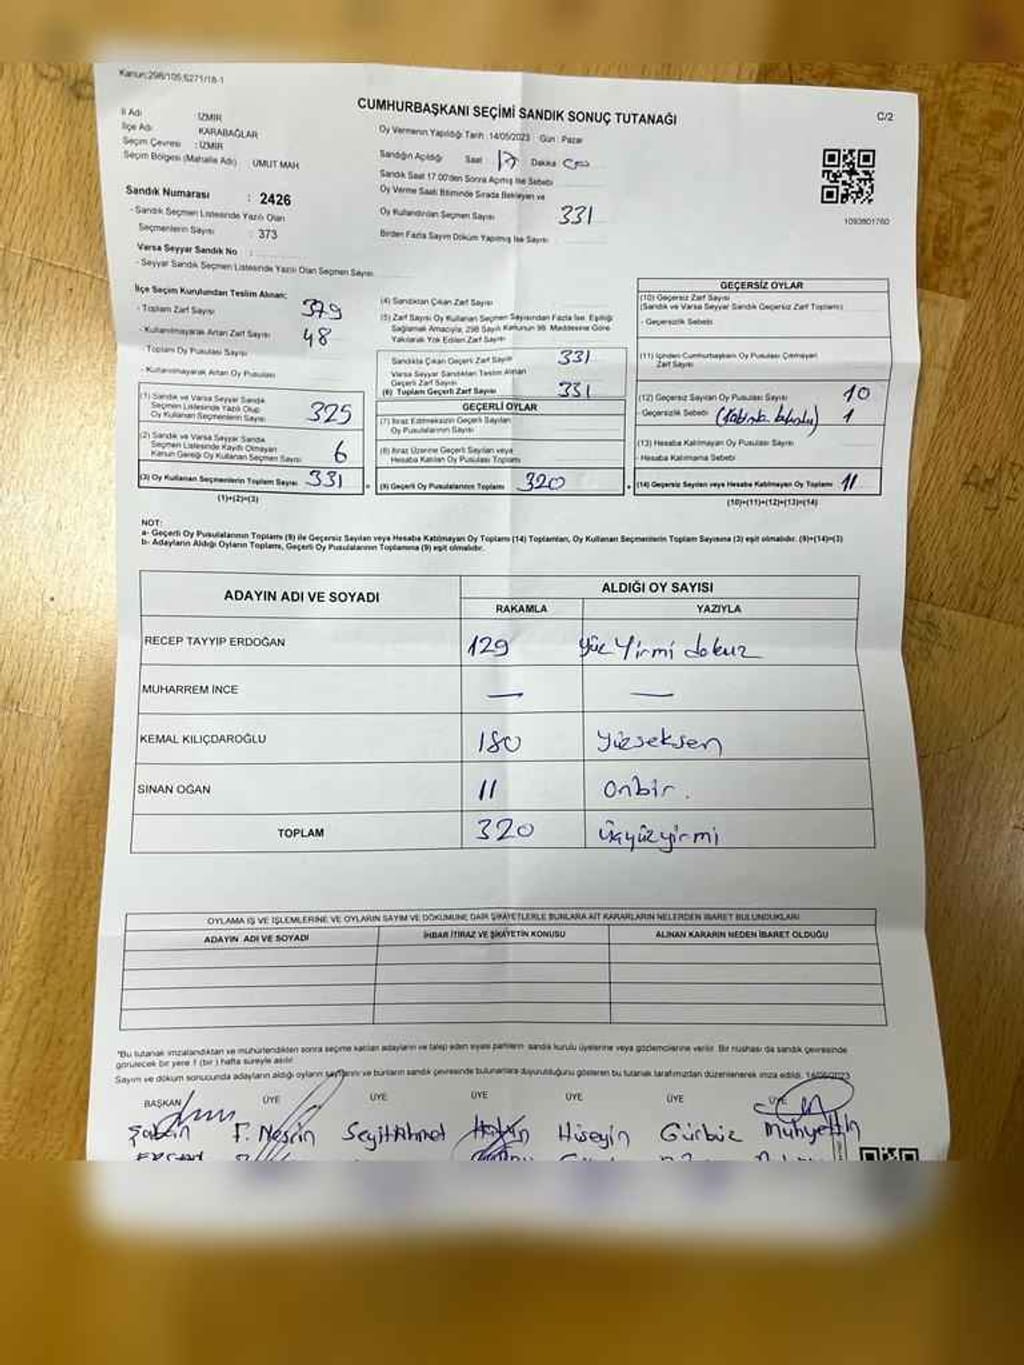 Kanun:298/105;6271/18-1
CUMHURBAŞKANI SEÇİMİ SANDIK SONUÇ TUTANAĞI
C/2
İl Adı : İZMİR
İlçe Adı : KARABAĞLAR
Seçim Çevresi : İZMİR
Seçim Bölgesi (Mahalle Adı) UMUT MAH
Sandık Numarası : 2426
- Sandık Seçmen Listesinde Yazılı Olan
Seçmenlerin Sayısı : 373
Varsa Seyyar Sandık No :
- Seyyar Sandık Seçmen Listesinde Yazılı Olan Seçmen Sayısı
Oy Vermenin Yapıldığı Tarih :14/05/2023 Gün : Pazar
Sandığın Açıldığı Saat 17 Dakika
Sandık Saat 17.00'den Sonra Açılmış İse Sebebi
Oy Verme Saati Bitiminde Sırada Bekleyen ve
Oy Kullandırılan Seçmen Sayısı 331
Birden Fazla Sayım Döküm Yapılmış İse Sayısı
1093801760
İlçe Seçim Kurulundan Teslim Alınan;
- Toplam Zarf Sayısı 379
- Kullanılmayarak Artan Zarf Sayısı 48
- Toplam Oy Pusulası Sayısı
- Kullanılmayarak Artan Oy Pusulası
(1) Sandık ve Varsa Seyyar Sandık
Seçmen Listesinde Yazılı Olup
Oy Kullanan Seçmenlerin Sayısı 325
(2) Sandık ve Varsa Seyyar Sandık
Seçmen Listesinde Kayıtlı Olmayan
Kanun Gereği Oy Kullanan Seçmen Sayısı 6
(3) Oy Kullanan Seçmenlerin Toplam Sayısı 331
(1)+(2)=(3)
(4) Sandıktan Çıkan Zarf Sayısı
(5) Zarf Sayısı Oy Kullanan Seçmen Sayısından Fazla İse, Eşitliği
Sağlamak Amacıyla, 298 Sayılı Kanunun 98. Maddesine Göre
Yakılarak Yok Edilen Zarf Sayısı
Sandıkta Çıkan Geçerli Zarf Sayısı 331
Varsa Seyyar Sandıktan Teslim Alınan
Geçerli Zarf Sayısı
(6) Toplam Geçerli Zarf Sayısı 331
GEÇERLİ OYLAR
(7) İtiraz Edilmeksizin Geçerli Sayılan
Oy Pusulalarının Sayısı
(8) İtiraz Üzerine Geçerli Sayılan veya
Hesaba Katılan Oy Pusulası Toplamı
(9) Geçerli Oy Pusulalarının Toplamı 320
GEÇERSİZ OYLAR
(10) Geçersiz Zarf Sayısı
(Sandık ve Varsa Seyyar Sandık Geçersiz Zarf Toplamı)
- Geçersizlik Sebebi
(11) İçinden Cumhurbaşkanı Oy Pusulası Çıkmayan
Zarf Sayısı
(12) Geçersiz Sayılan Oy Pusulası Sayısı 10
- Geçersizlik Sebebi 1
(13) Hesaba Katılmayan Oy Pusulası Sayısı
- Hesaba Katılmama Sebebi
(14) Geçersiz Sayılan veya Hesaba Katılmayan Oy Toplamı 11
(10)+(11)+(12)+(13)=(14)
NOT:
a- Geçerli Oy Pusulalarının Toplamı (9) ile Geçersiz Sayılan veya Hesaba Katılmayan Oy Toplamı (14) Toplamları, Oy Kullanan Seçmenlerin Toplam Sayısına (3) eşit olmalıdır. (9)+(14)=(3)
b- Adayların Aldığı Oyların Toplamı, Geçerli Oy Pusulalarının Toplamına (9) eşit olmalıdır.
ADAYIN ADI VE SOYADI
ALDIĞI OY SAYISI
RAKAMLA YAZIYLA
RECEP TAYYIP ERDOĞAN 129 Yüz Yirmi dokuz
MUHARREM İNCE — —
KEMAL KILIÇDAROĞLU 180 Yüzseksen
SİNAN OĞAN 11 Onbir.
TOPLAM 320 Üçyüzyirmi
OYLAMA İŞ VE İŞLEMLERİNE VE OYLARIN SAYIM VE DÖKÜMÜNE DAİR ŞİKAYETLERLE BUNLARA AİT KARARLARIN NELERDEN İBARET BULUNDUKLARI
ADAYIN ADI VE SOYADI İHBAR İTİRAZ VE ŞİKAYETİN KONUSU ALINAN KARARIN NEDEN İBARET OLDUĞU
*Bu tutanak imzalandıktan ve mühürlendikten sonra seçime katılan adayların ve talep eden siyasi partilerin sandık kurulu üyelerine veya gözlemcilerine verilir. Bir nüshası da sandık çevresinde
görülecek bir yere 1 (bir) hafta süreyle asılır.
Sayım ve döküm sonucunda adayların aldığı oyların sayılarını ve bunların sandık çevresinde bulunanlara duyurulduğunu gösteren bu tutanak tarafımızdan düzenlenerek imza edildi. 14/05/2023
BAŞKAN ÜYE ÜYE ÜYE ÜYE ÜYE ÜYE
Şahin F. Nesrin SeyitAhmet Hakan Hüseyin Gürbüz Muhyettin
ERCAN